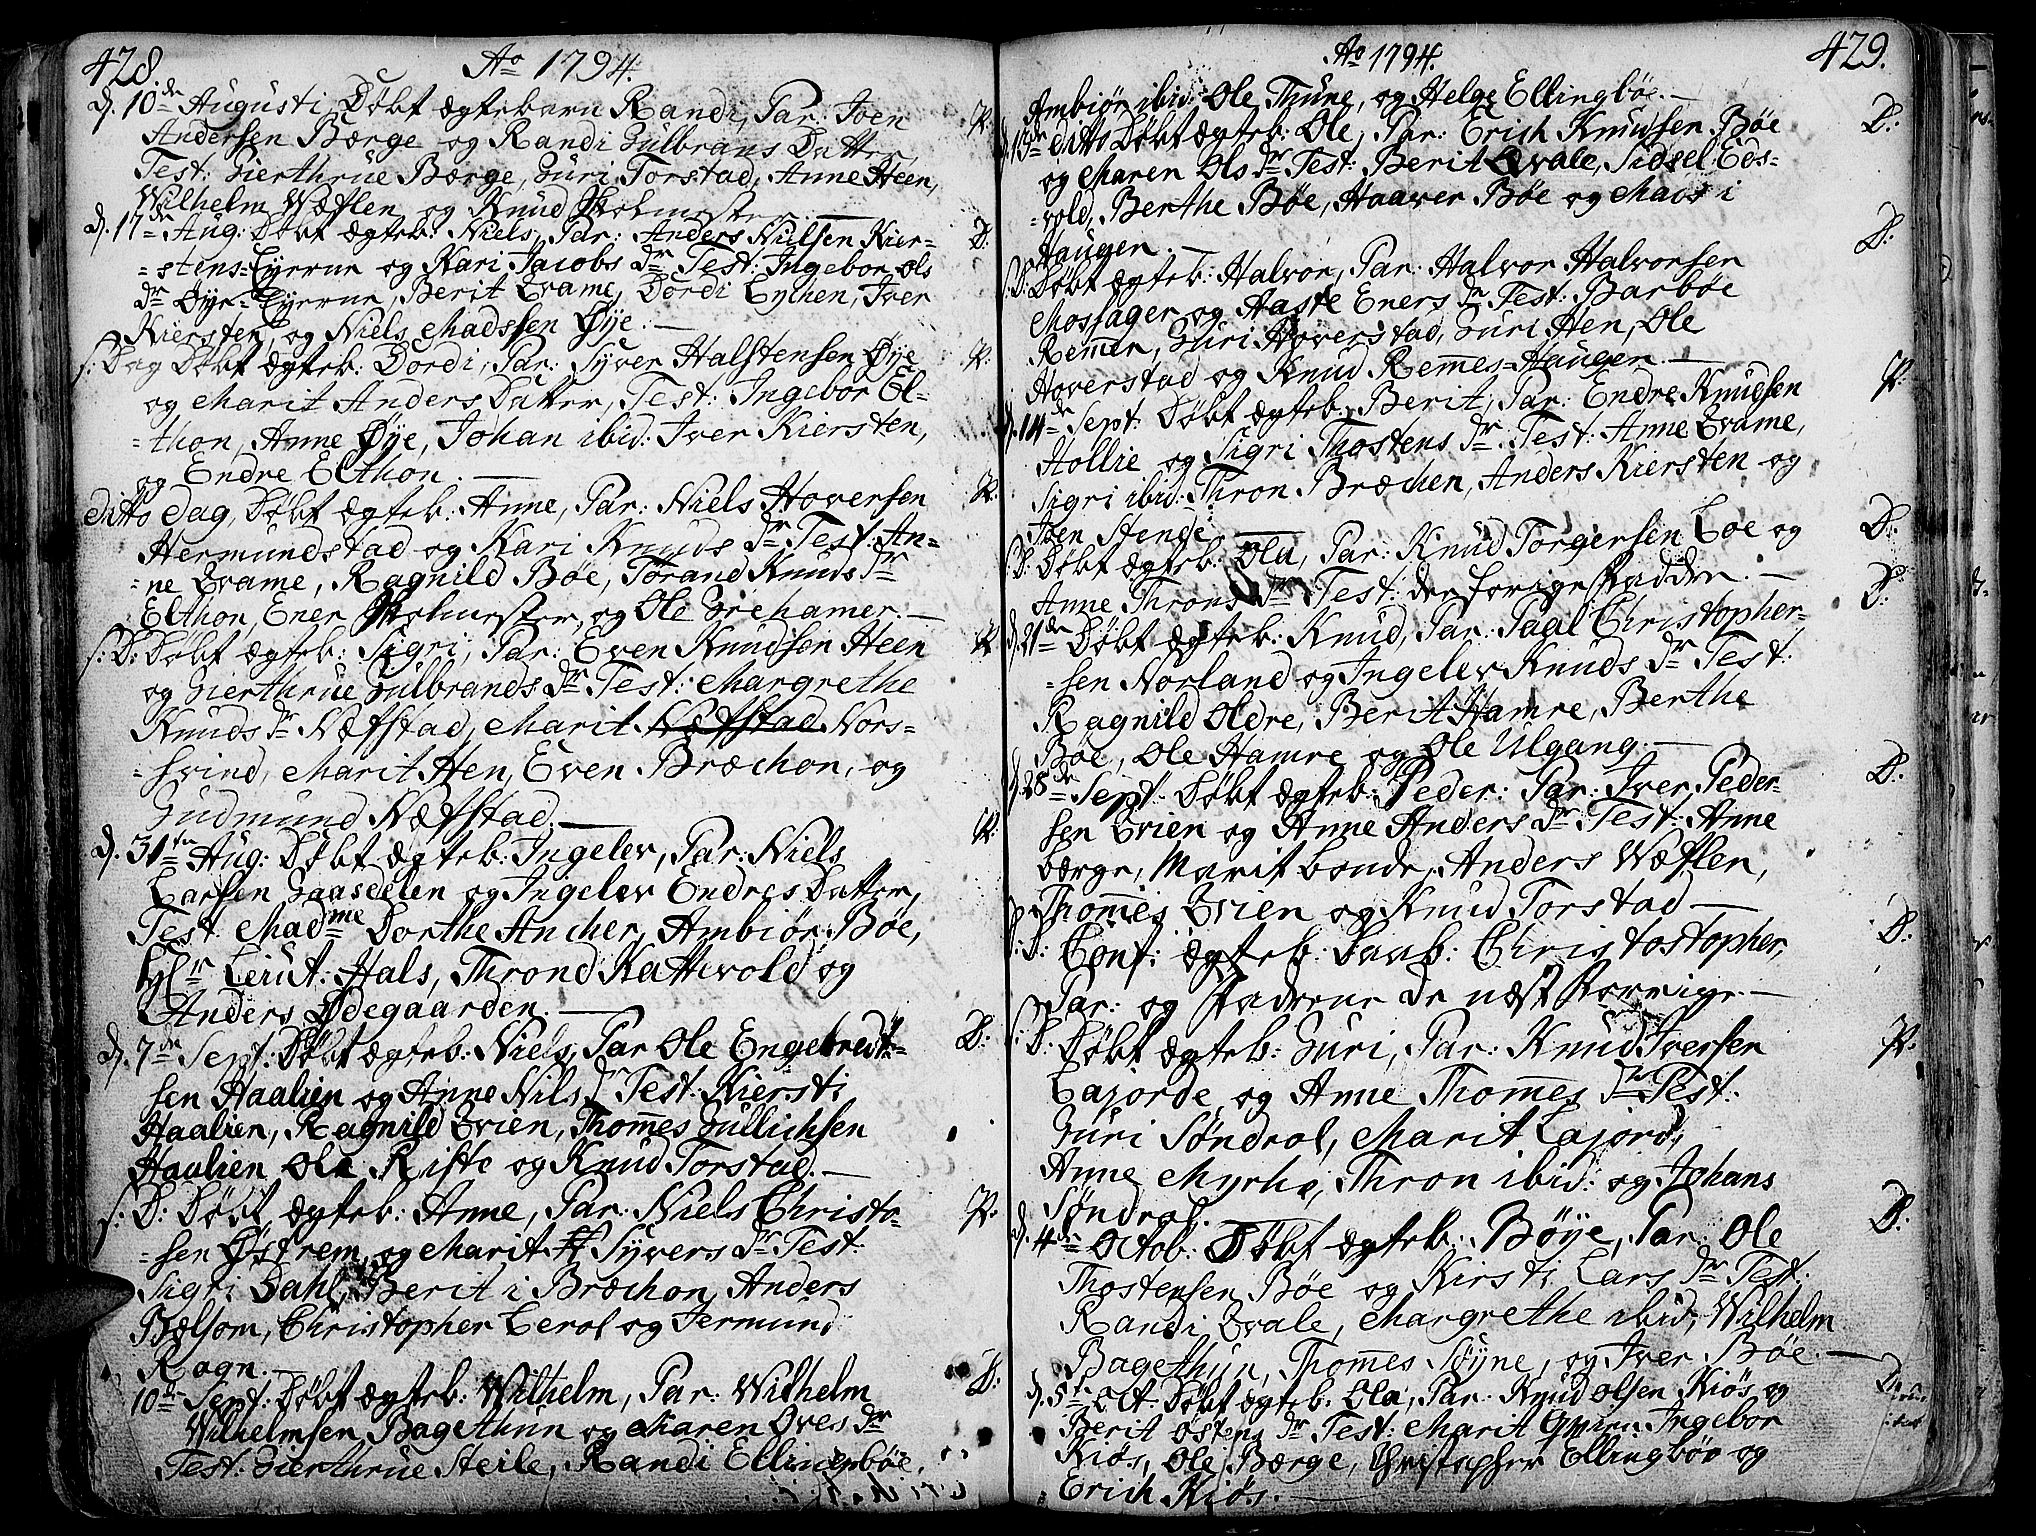 428.
Ao 1794.
d. 10de Augusti, Døbt ægtebarn Randi, Par: Joen P.
Andersen Bærge og Randi Gulbrans Datter,
Test: Gierthrue Bærge, Guri Torstad, Anne Heen,
Wilhelm Wæflen og Knud Skolmester. —
d. 17de Aug: Døbt ægteb: Niels, Par: Anders Nielsen Kier= D.
=stens=Eyerne og Kari Jacobs Dr Test: Ingebor Ols
Dr Øye=Eyerne, Berit Qvame, Dordi Lychen, Iver
Kiersten, og Niels Madssen Øye. —
s: Dag Døbt ægteb: Dordi, Par: Syver Halstensen Øye P.
og Marit Anders Datter, Test: Ingebor El-
-thon, Anne Øye, Johan ibid: Iver Kiersten,
og Endre Elthon. —
ditto Dag, Døbt ægteb: Anne, Par: Niels Hoversen P.
Hermundstad og Kari Knuds Dr Test: An-
-ne Qvame, Ragnild Bøe, Torand Knuds Dr
Elthon, Ener Skolmester, og Ole Grehamer. —
s: D: Døbt ægteb: Sigri, Par: Even Knudsen Heen P.
og Gierthrue Gulbrands Dr Test: Margrethe
Knuds Dr Næfstad, Marit Næfstad Nors-
=hvind, Marit Hen, Even Bræchon, og
Gudmund Næfstad. —
d. 31ten Aug: Døbt ægteb: Ingelev, Par: Niels P.
Larsen Gaasedelen og Ingelev Endres Datter,
Test: Madme Dorthe Ancher, Ambiør Bøe,
Hr Leiut: Hals, Thrond Kattevold og
Anders Ødegaarden. —
d. 7de Sept: Døbt ægteb: Niels, Par Ole Engebredt- D:
sen Haalien og Anne Nils Dr Test: Kiersti
Haalien, Ragnild Qvien, Thom̅es Gullichsen
Haalien Ole Riste og Knud Torstad. —
s: D: Døbt ægteb: Anne, Par: Niels Christo- P.
=sen Østrem og Marit Syvers Dr Test:
Sigri Dahl, Berit i Bræchon, Anders
Bælsom, Christopher Lerol og Jermund
Rogn. —
10de Sept: Døbt ægteb: Wilhelm, Par: Wilhelm D:
Wilhelmsen Bagethun og Maren Oves Dr
Test: Gierthrue Steile, Randi Ellingbøe,
429.
Ao 1794.
Ambiør ibid: Ole Thune, og Helge Ellingbøe. —
d. 13de ditto Døbt ægteb: Ole, Par: Erich Knudsen Bøe D:
og Maren Ols Dr Test: Berit Qvale, Sidsel Eds-
=vold, Berthe Bøe, Haaver Bøe og Mads i
Haugen. —
s: D: Døbt ægteb: Halvor, Par: Halvor Halvorsen D:
Mosfager og Aaste Eners Dr Test: Barbøe
Rem̅en, Guri Hoverstad, Guri Hen, Ole
Hoverstad og Knud Rem̅es=Haugen. —
d. 14de Sept: Døbt ægteb: Berit, Par: Endre Knudsen P:
Hollie og Sigri Thostens Dr. Test: Anne Qvame,
Sigri ibid: Thron Bræchen, Anders Kiersten og
Joen Stende. —
s: D: Døbt ægteb: Ola, Par: Knud Torgersen Loe og D:
Anne Throns Dr Test: den forige Fadder. —
d. 21de Døbt ægteb: Knud, Par: Paal Christopher- D:
-sen Norland og Ingelev Knuds Dr Test:
Ragnild Oldre, Berit Hamre, Berthe
Bøe, Ole Hamre og Ole Ulgang. —
d. 28de Sept: Døbt ægteb: Peder: Par: Iver Peder- D:
sen Qvien og Anne Anders Dr Test: Anne
bærge, Marit bonde, Anders Wæflen,
Thom̅es Qvien og Knud Torstad —
s: D: Conf: ægteb: Christostopher, D:
Par: og Fadrene de næst Forrige. —
s: D. Døbt ægteb: Guri, Par: Knud Iversen P.
Lajorde og Anne Thom̅es Dr Test:
Guri Søndrol, Marit Lajord,
Anne Myrhe, Thron ibid: og Johans
Søndrol.
d. 4de Octob: Døbt ægteb: Bøye, Par: Ole D:
Thostensen Bøe og Kirsti Lars Dr Test:
Randi Qvale, Margrethe ibid, Wilhelm
Bagethun, Thom̅es Søyne, og Iver Bøe. —
d. 5te Oct: Døbt ægteb: Ola, Par: Knud Olsen Kiøs og D:
Berit Østens Dr Test: Marit Ingebor
Kiøs, Ole Bærge, Christopher Ellingbøe og
Erich Kiøs. —